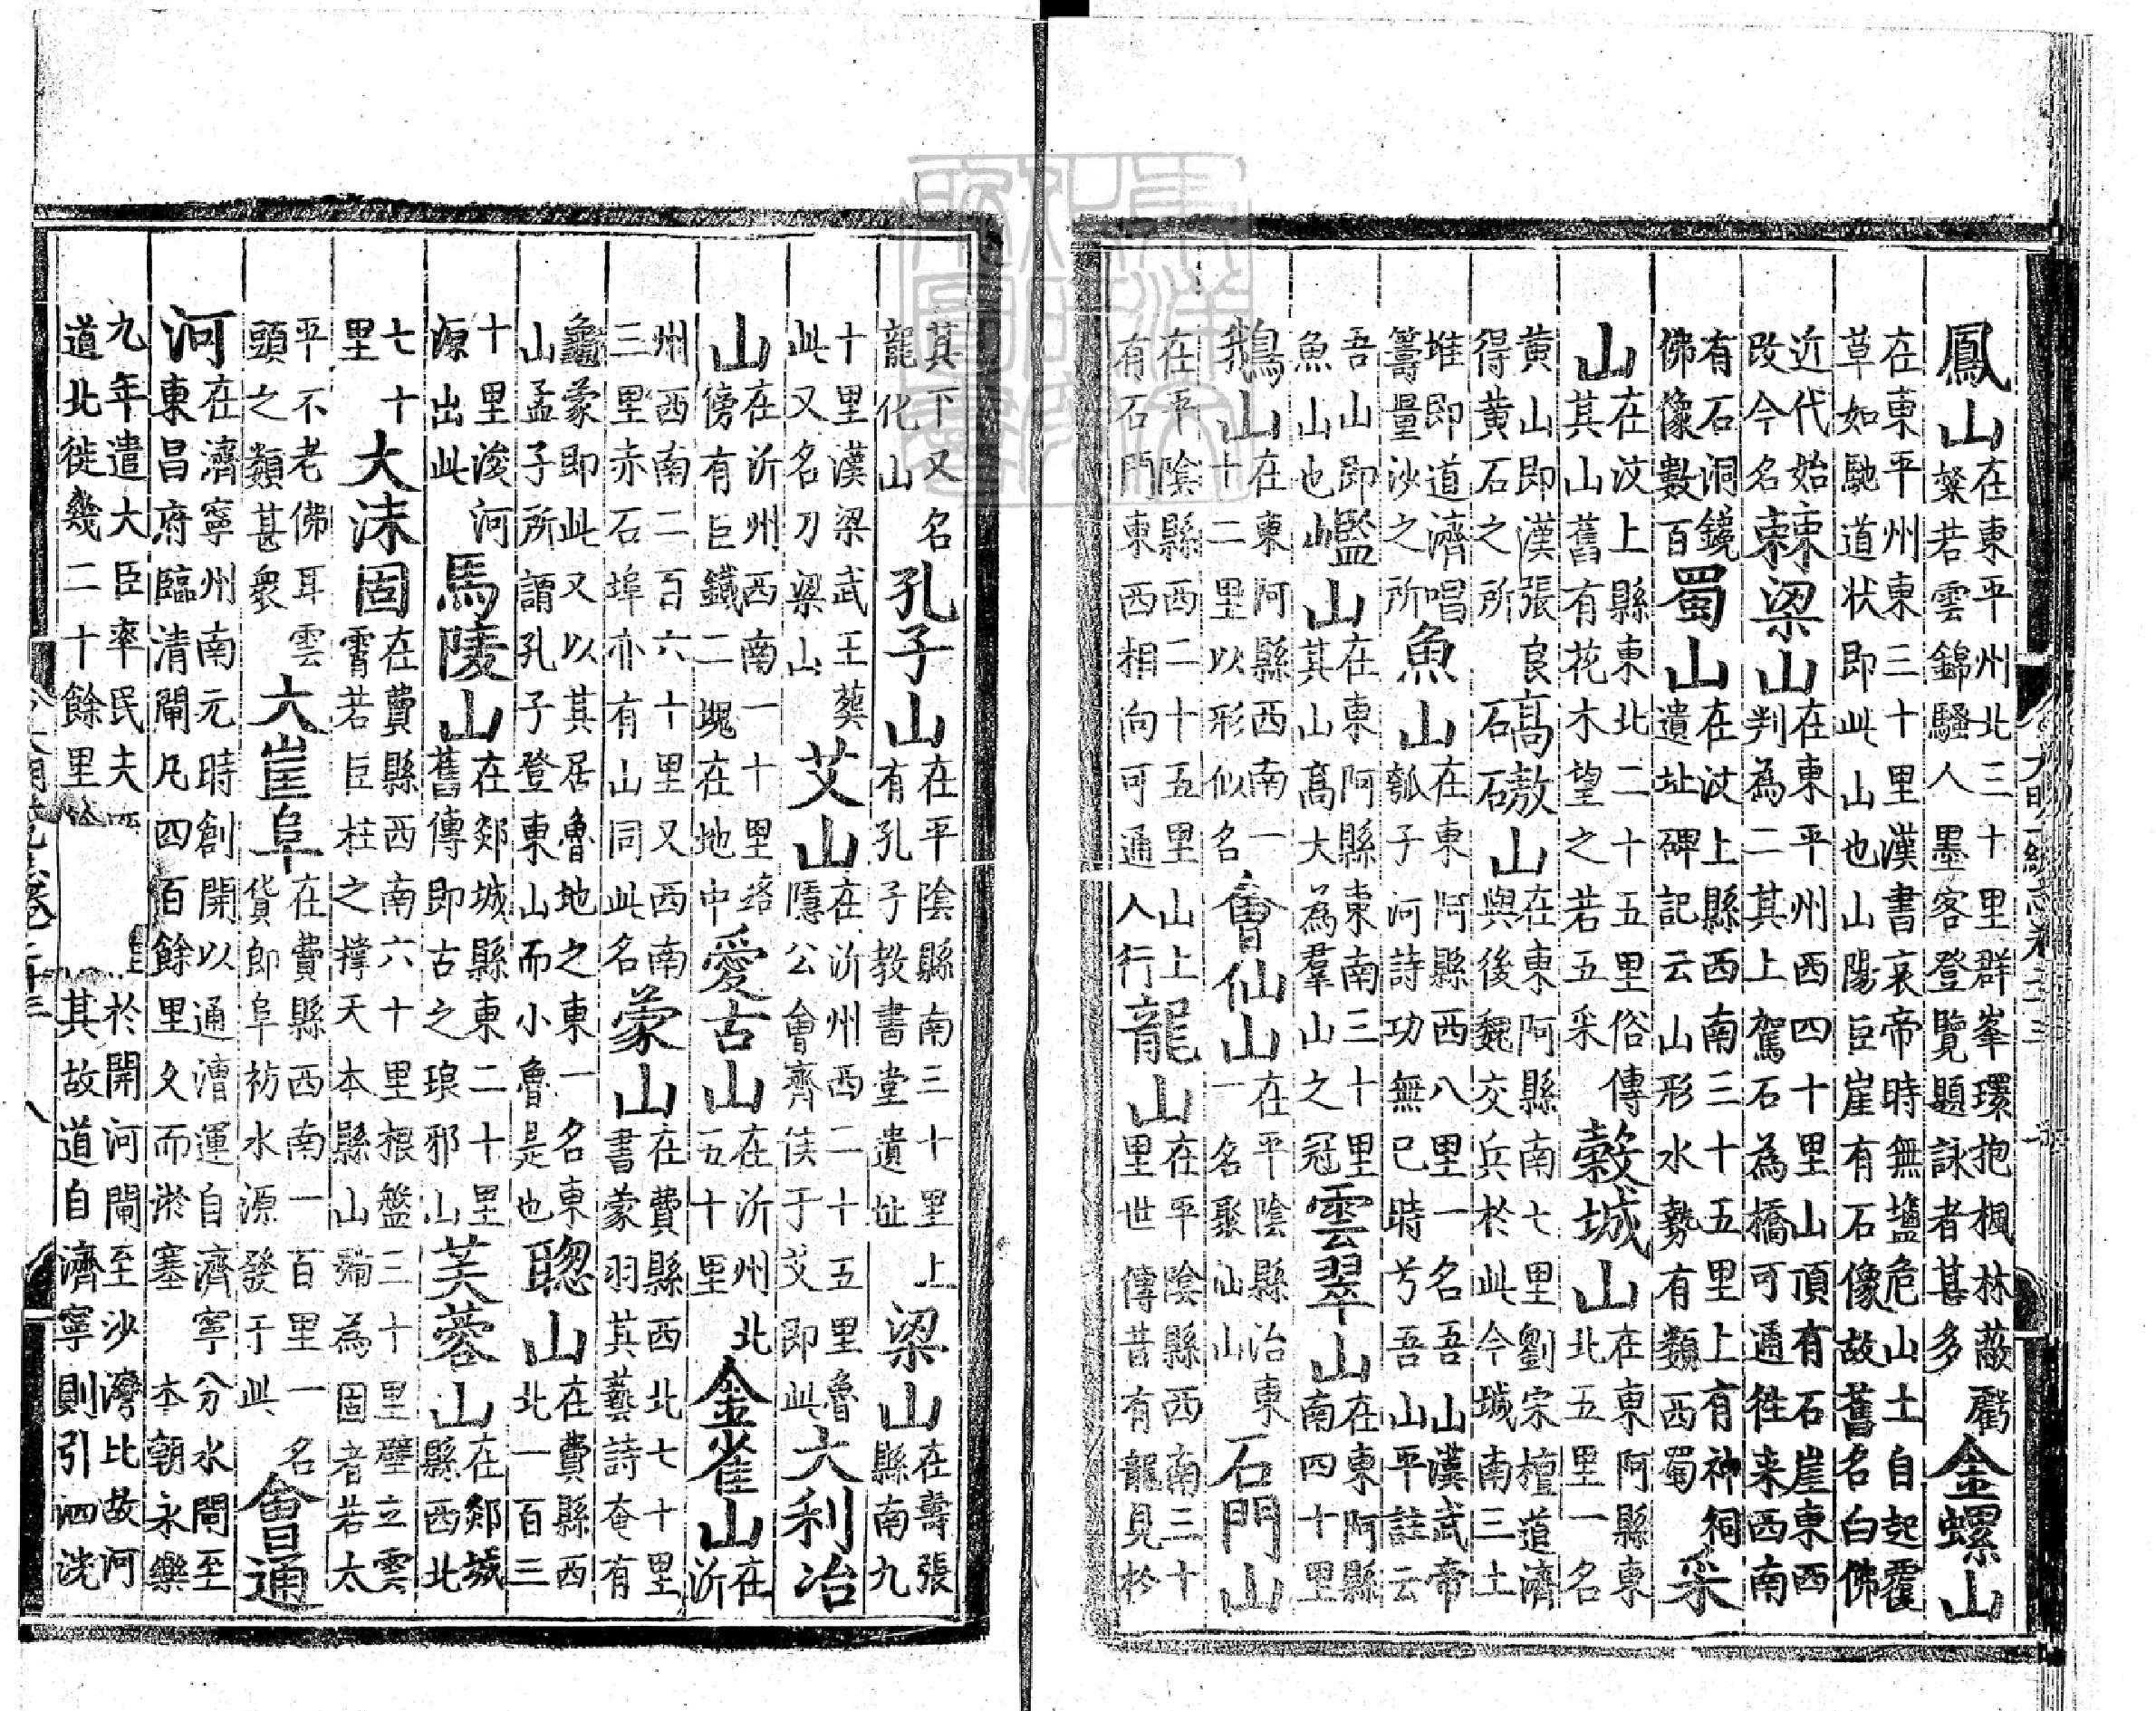 鳳山在東平州北三十里群峯環抱楓林蔽虧粲若雲錦騷人墨客登覽題詠者甚多金螺山
在東平州東三十里漢書哀帝時無塩危山土自起覆草如馳道状即此山也山陽巨崖有石像故舊名白佛
近代始改今名棘梁山在東平州西四十里山頂有石崖東西判為二其上駕石為橋可通徃来西南
有石洞鐫佛像數百蜀山在汶上縣西南三十五里上有神祠遺址碑記云山形水勢有類西蜀采
山在汶上縣東北二十五里俗傳其山舊有花木望之若五采穀城山在東阿縣東北五里一名
黄山即漢張良得黄石之所碻磝山在東阿縣南七里劉宋檀道濟與後魏交兵於此今城南三土
堆即道濟唱籌量沙之所魚山在東阿縣西八里一名吾山漢武帝瓠子河詩功無已時兮吾山平註云
吾山即魚山也㟕山在東阿縣東南三十里其山高大為羣山之冠雲翠山在東阿縣南四十里
鵝山在東阿縣西南一十二里以形似名會仙山在平陰縣治東一名聚仙山石門山
在平陰縣西二十五里山上有石門東西相向可通人行龍山在平陰縣西南三十里世傳昔有龍見於
其下又名龍化山孔子山在平陰縣南三十里上有孔子教書堂遺址梁山在壽張縣南九
十里漢梁武王葬此又名刀梁山艾山在沂州西二十五里魯隱公會齊侯于艾即此大利冶
山在沂州西南一十里塔傍有巨鐵二塊在地中愛古山在沂州北五十里金雀山在沂
州西南二百六十里又西南三里赤石埠亦有山同此名蒙山在費縣西北七十里書蒙羽其藝詩奄有
龜蒙即此又以其居魯地之東一名東山孟子所謂孔子登東山而小魯是也聰山在費縣西北一百三
十里浚河源出此馬陵山在郯城縣東二十里舊傳即古之琅邪山芙蓉山在郯城縣西北
七十里大沫固在費縣西南六十里根盤三十里壁立雲霄若巨柱之撑天本縣山號為固者若太
平不老佛耳雲頭之類甚衆大崖阜在費縣西南一百里一名貨郎阜祊水源發于此會通
河在濟寧州南元時創開以通漕運自濟寧分水閘至東昌府臨清閘凡四百餘里久而淤塞本朝永樂
九年遣大臣率民夫於開河閘至沙灣北故河道北徙幾二十餘里其故道自濟寧則引泗洸